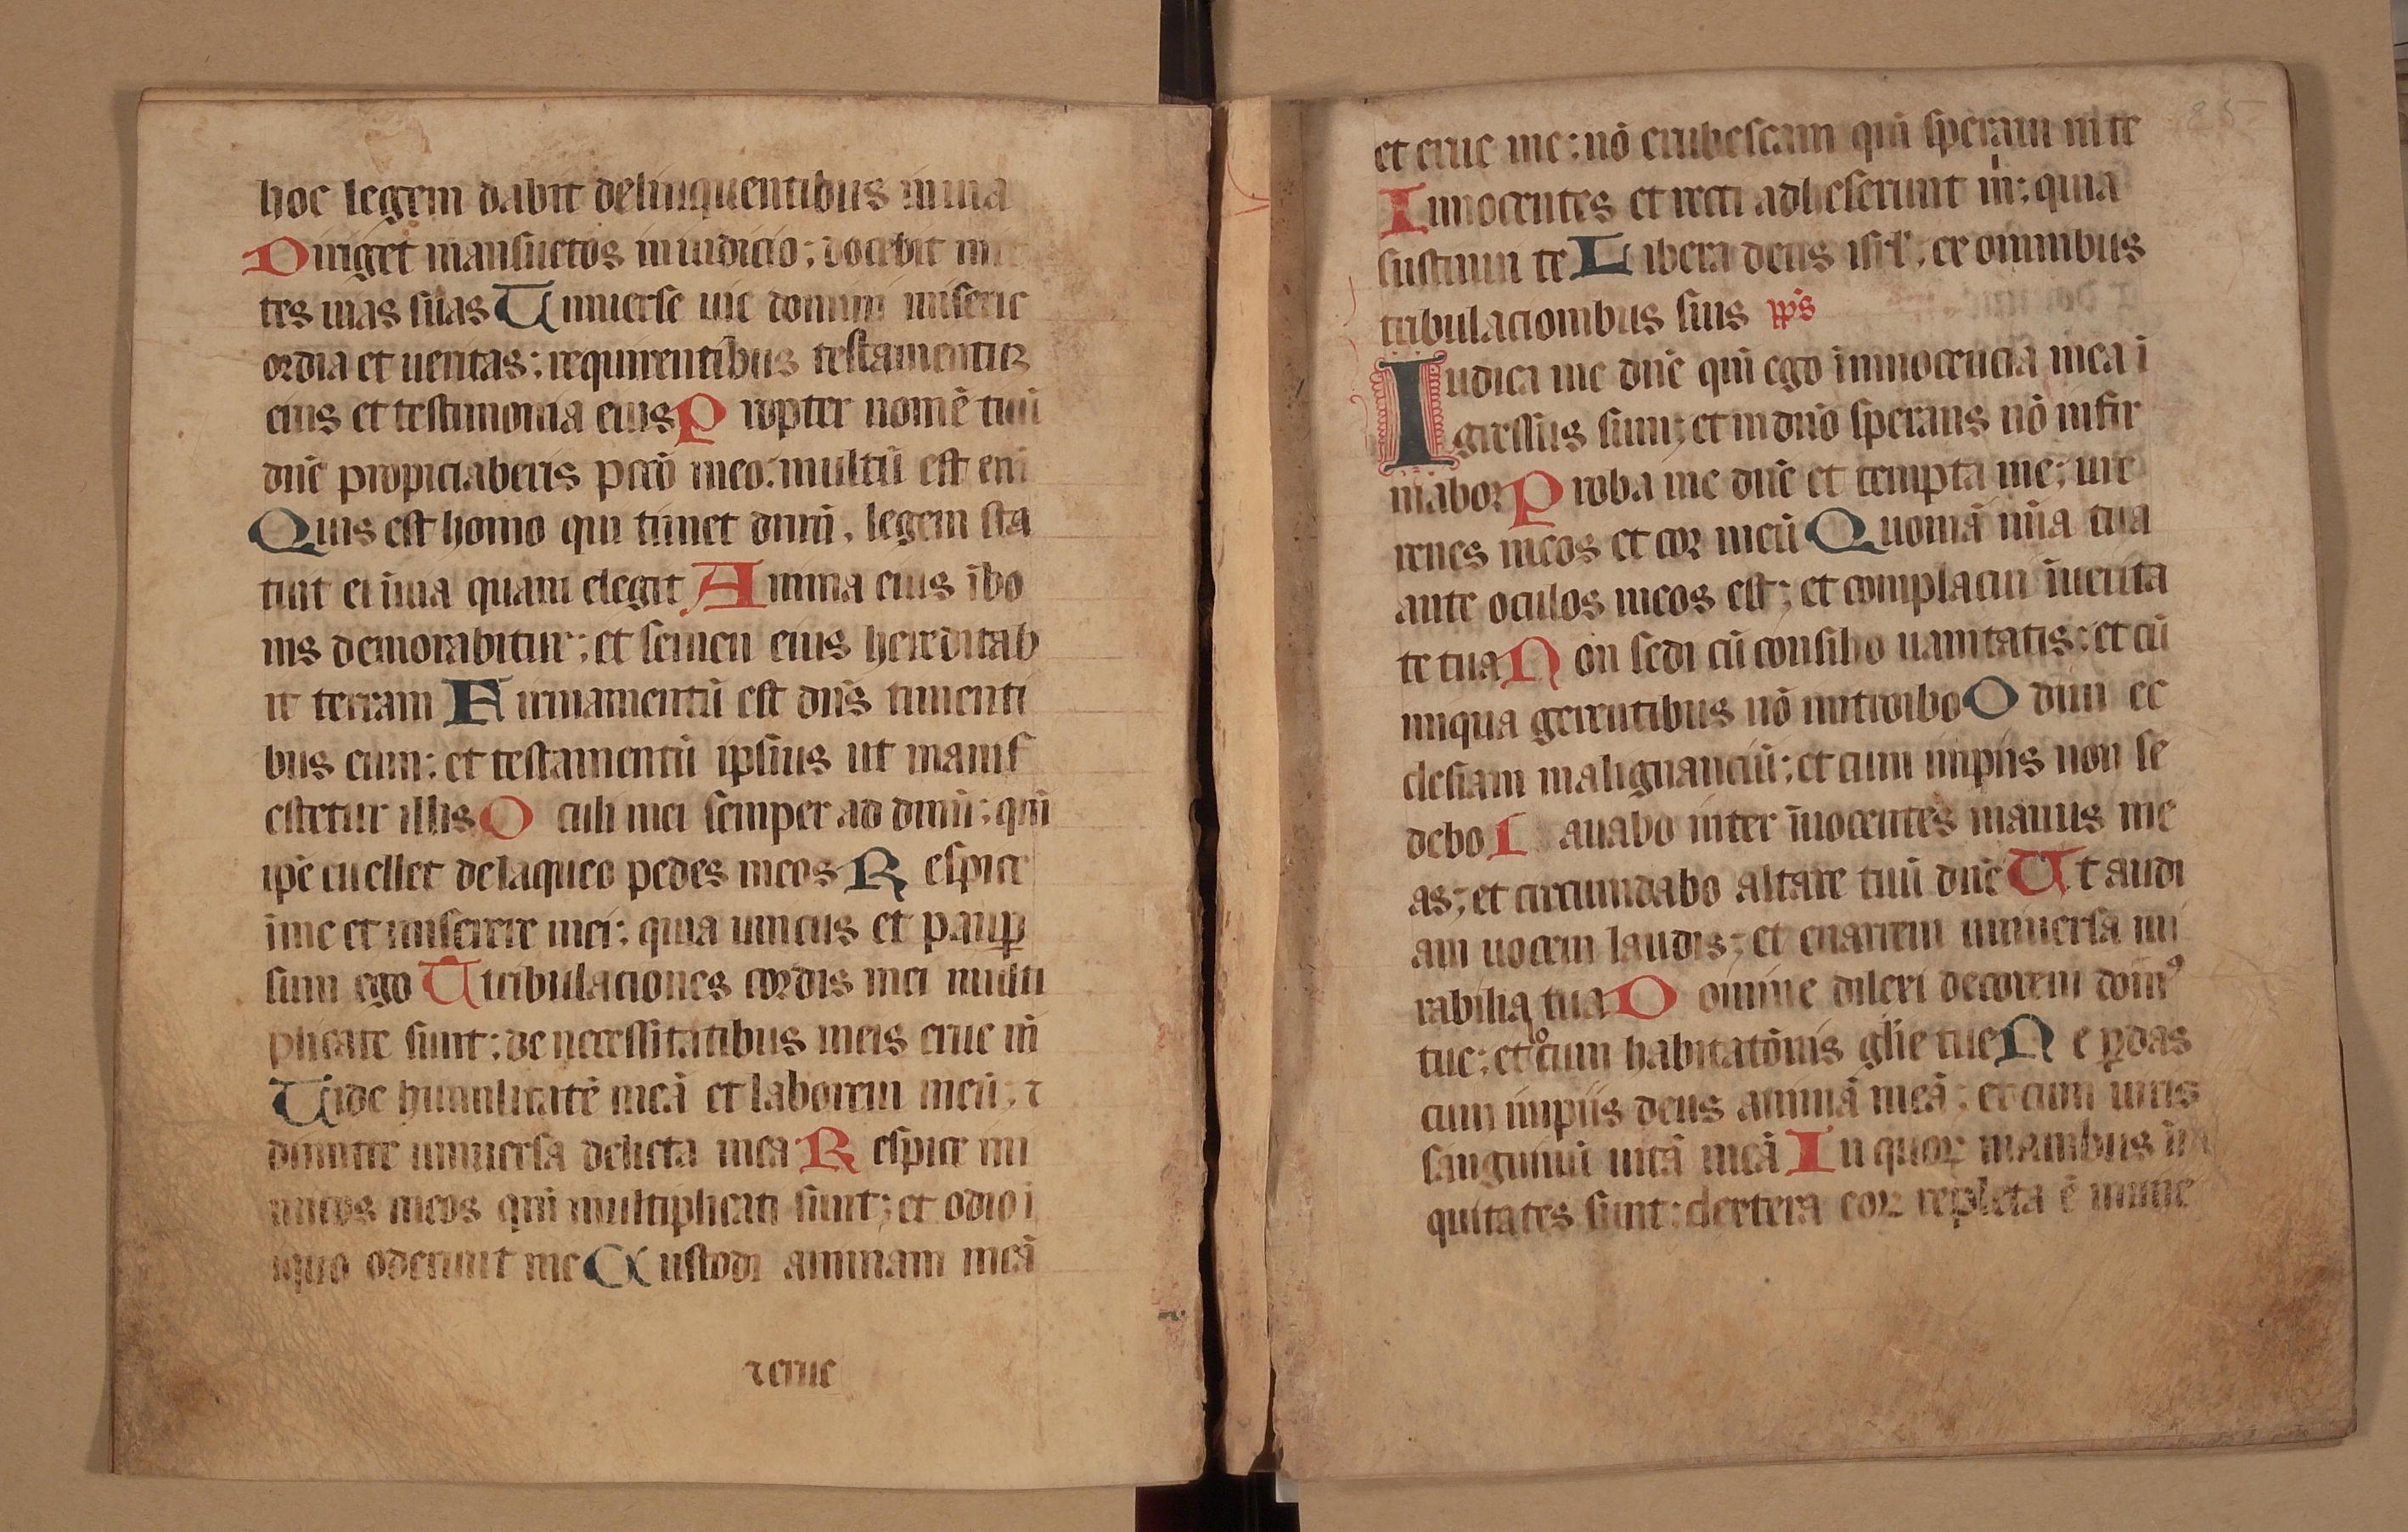 hoc legem dabit delinquentibus in uia
Diriget mansuetos in iudicio; docebit mi
tes uias suas Uniuerse uie domini miseric
ordia et ueritas; requirentibus testamentum
eius et testimonia eius Propter nomē tuū
dn̄e propiciaberis pctō meo: multū est eni
Quis est homo qui timet dnm̄, legem sta
tuit ei ī uia quam elegit Anima eius ī bo
nis demorabitur; et semen eius hereditab
it terram Firmamentū est dn̄s timenti
bus eum; et testamentū ipsius ut manif
estetur illis Oculi mei semper ad dnm̄; qm̄
ip̄e euellet de laqueo pedes meos Respice
ī me et miserere mei; quia unicus et paup̲
sum ego Tribulaciones cordis mei multi
plicate sunt; de necessitatibus meis erue m̄
Uide humilitatē meā et laborem meū; ⁊
dimitte uniuersa delicta mea Respice ini
micos meos qm̄ multiplicati sunt; et odio i
iquo oderunt me Custodi animam meā
⁊ erue
et erue me; nō erubescam qm̄ speraui in te
Innocentes et recti adheserunt m̄; quia
sustinui te Libera deus isrl̄; ex omnibus
tribulacionibus suis pp̄s
Iudica me dn̄e qm̄ ego ī innocencia mea ī
gressus sum; et in dnō sperans nō infir
mabor Proba me dn̄e et tempta me; ure
renes meos et cor meū Quoniā mīa tua
ante oculos meos est; et complacui ī uerita
te tua Non sedi cū consilio uanitatis; et cū
iniqua gerentibus nō introibo Odiui ec
clesiam malignanciū; et cum impiis non se
debo Lauabo inter īnocentes manus me
as; et circumdabo altare tuū dn̄e Ut audi
am uocem laudis; et enarrem uniuersa mi
rabilia tua Domine dilexi decorem dom⁹
tue; et locum habitatōnis glīe tue Ne p̲das
cum impiis deus animā meā; et cum uiris
sanguinū uitā meā In quoꝝ manibus in
quitates sunt; dextera eoꝝ repleta ē mune
25